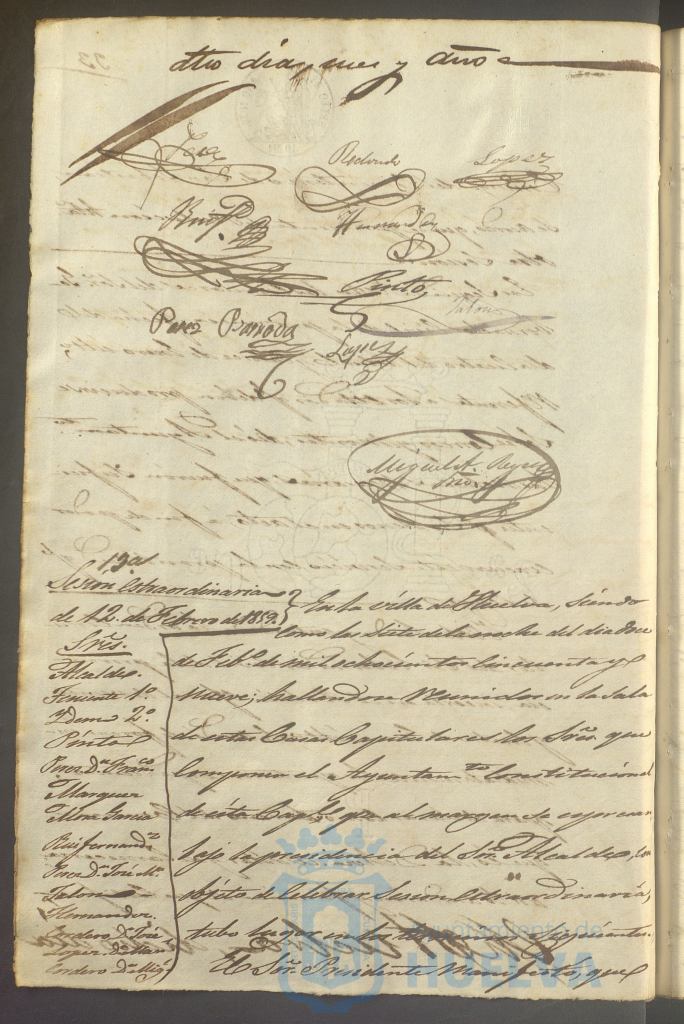 dho dia, mes y año
Perez Redondo Lopez
Ruiz F. Hernandez
Pinto
Talon
Perez Barroda
Lopez
Miguel A. Reyes
Srio
13ª
Sesion estraordinaria
de 12 de Febrero de 1859.
Sres.
Alcalde.
Teniente 1º
Ydem 2º.
Pinto
Perez Dn. Franco
Marquez
Mora Garcia
Ruifernandz
Perez Dn. José Mª
Talon
Hernandez
Cordero Dn. José
Lopez Dn. Manl
Cordero Dn. Migl
En la villa de Huelva, siendo
como las siete de la noche del dia doce
de Febo. de mil ochocientos cincuenta y
nueve; hallandose reunidos en la Sala
de estas Casas Capitulares los Sres. que
componen el Ayuntamto Constitucional
de esta Capl, que al margen se espresan
bajo la presidencia del Sor. Alcalde, con
objeto de celebrar Sesion estraordinaria,
tubo lugar en los terminos siguientes.
El Sor. Presidente manifestó, que
Ayuntamiento de
HUELVA